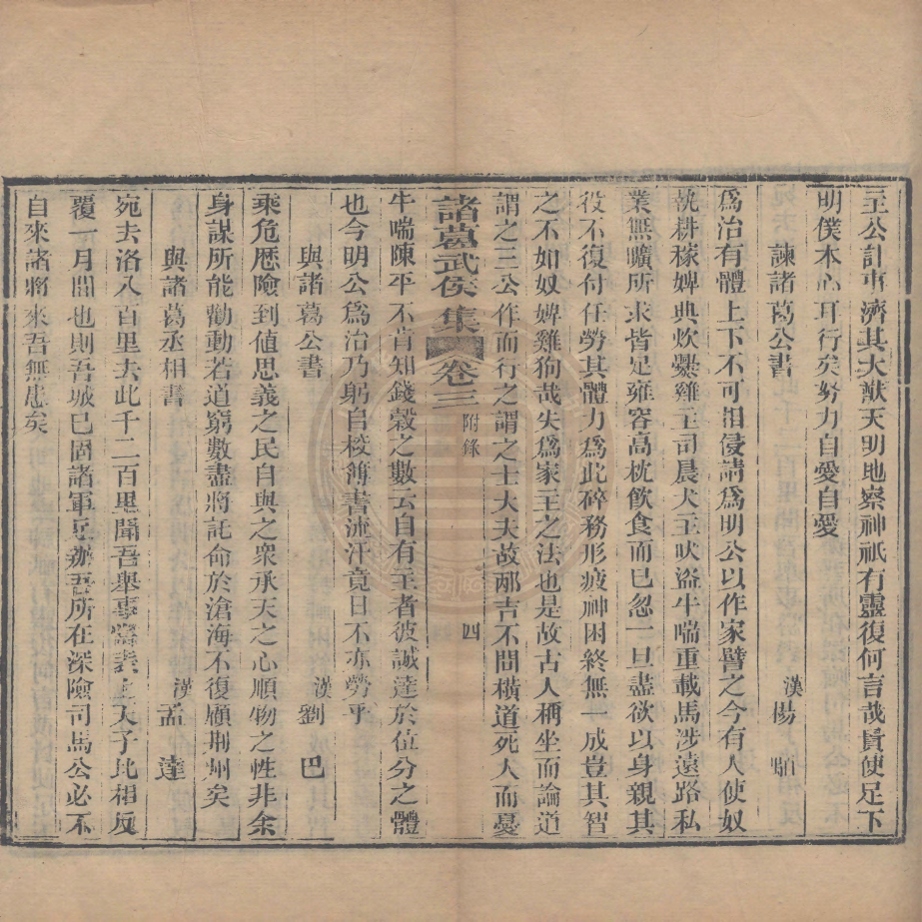 至公計事濟其大猷天明地察神祇有靈復何言哉賢使足下
明僕本心耳行矣努力自愛自愛
諫諸葛公書 漢楊顒
爲治有體上下不可相侵請爲明公以作家譬之今有人使奴
執耕稼婢典炊爨雞主司晨犬主吠盜牛喘重載馬涉遠路私
業無曠所求皆足雍容高枕飲食而已忽一旦盡欲以身親其
役不復付任勞其體力爲此碎務形疲神困終無一成豈其智
之不如奴婢雞狗哉失爲家主之法也是故古人稱坐而論道
謂之三公作而行之謂之士大夫故邴吉不問橫道死人而憂
諸葛武侯集 卷三 附錄 四
牛喘陳平不肯知錢穀之數云自有主者彼誠達於位分之體
也今明公爲治乃躬自校簿書流汗竟日不亦勞乎
與諸葛公書 漢劉巴
乘危歷險到值思義之民自與之衆承天之心順物之性非余
身謀所能勸動若道窮數盡將託命於滄海不復顧荆州矣
與諸葛丞相書 漢孟達
宛去洛八百里去此千二百里聞吾舉事當表上天子比相反
覆一月間也則吾城已固諸軍足辦吾所在深險司馬公必不
自來諸將來吾無慮矣